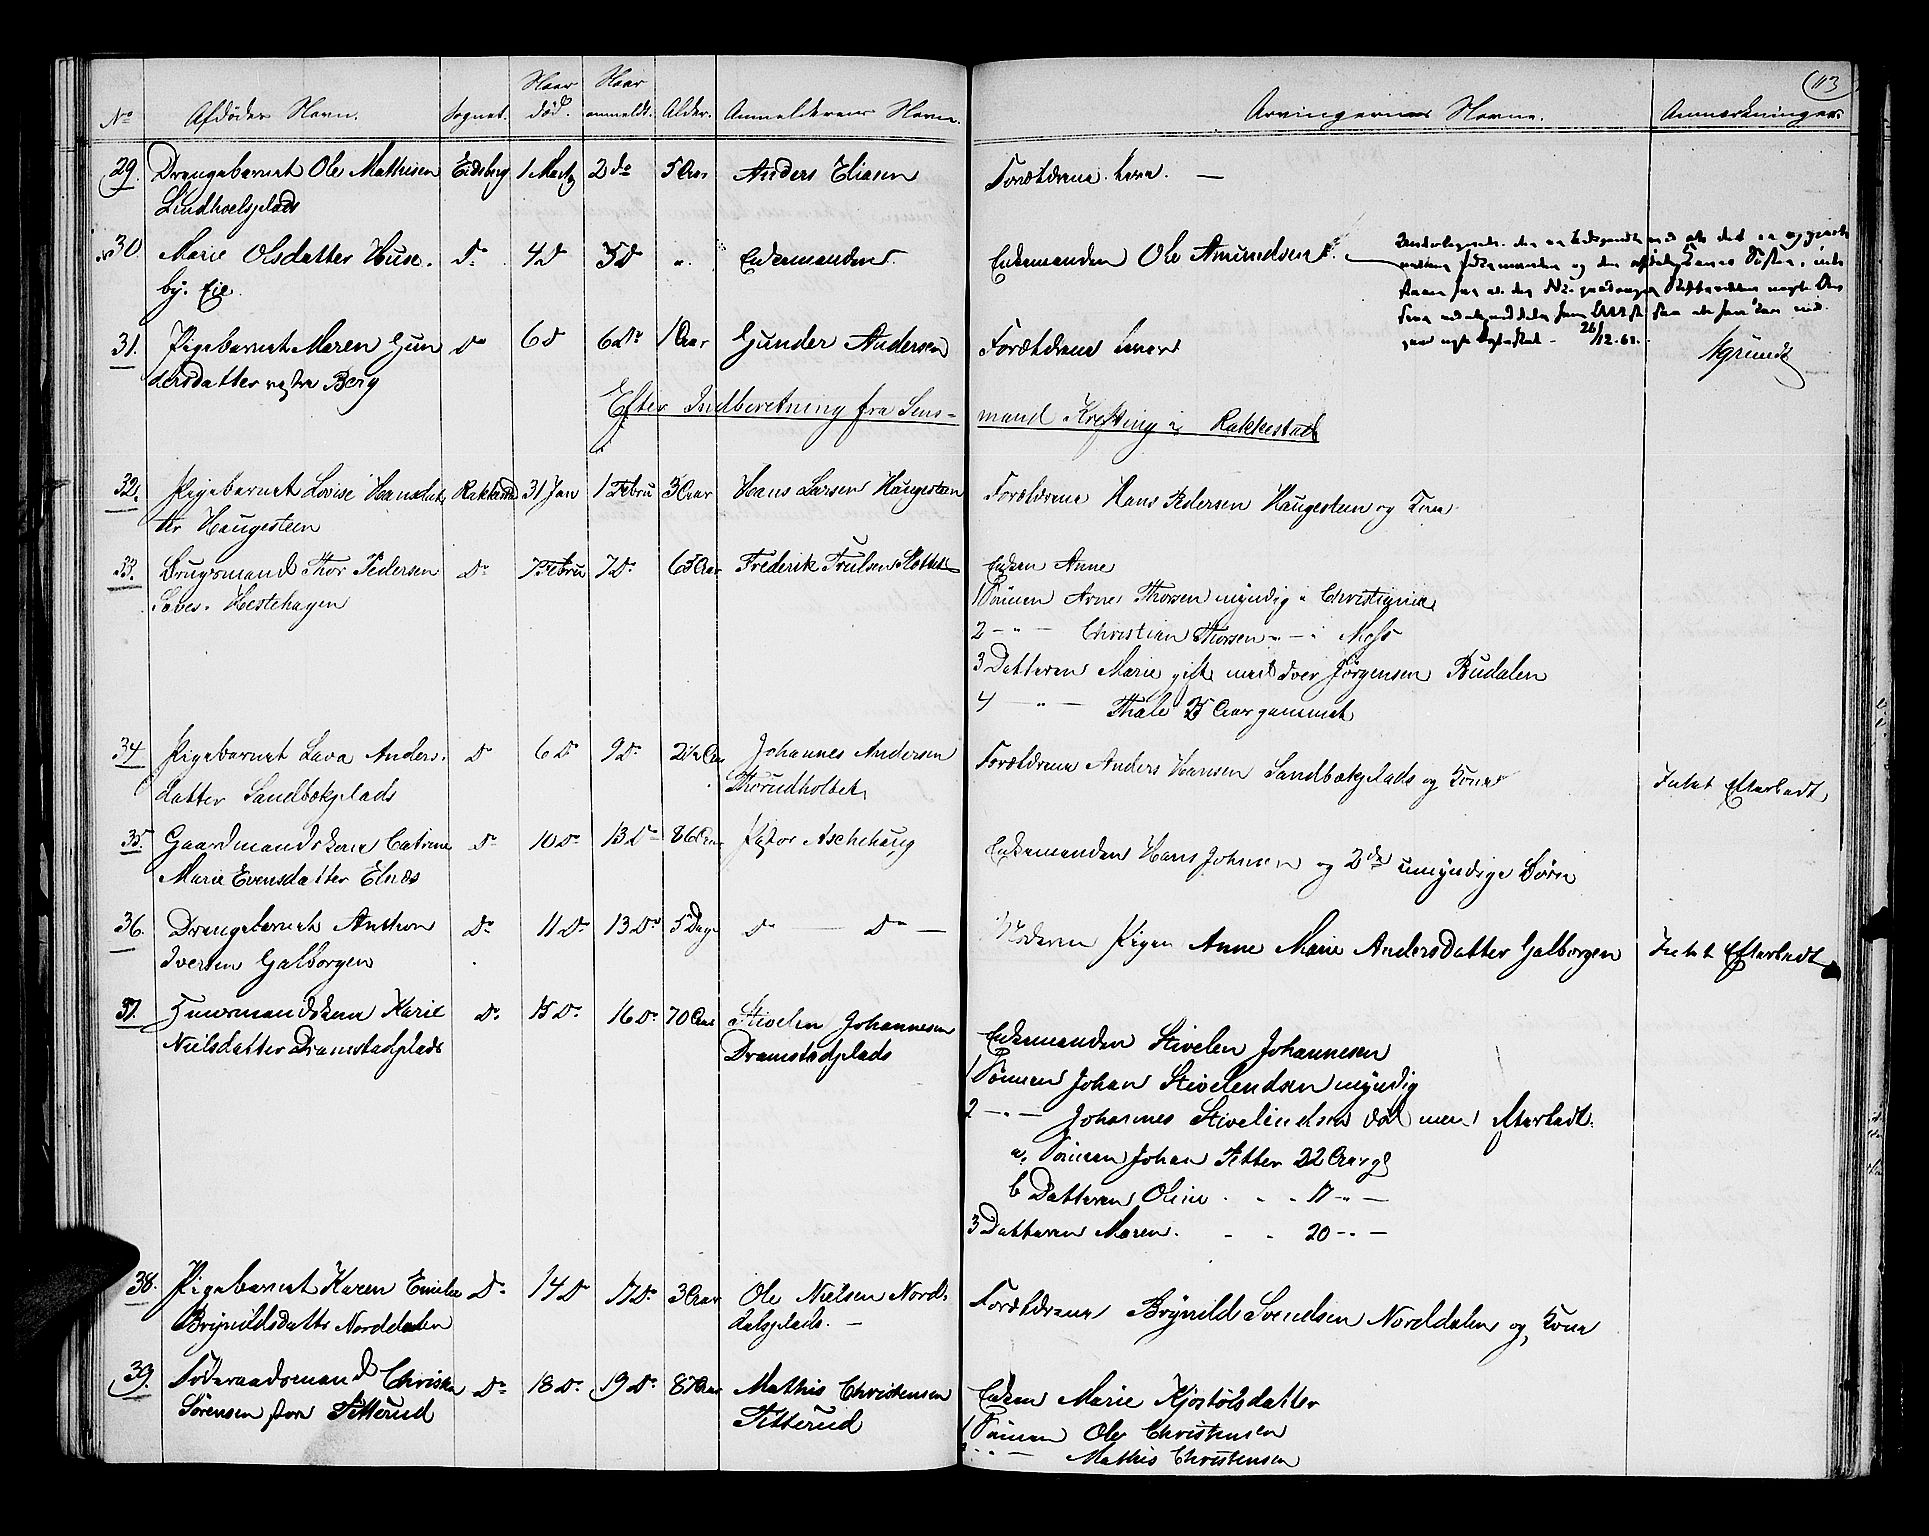 113
No Afdødes Navn. Sognet. Naar død. Naar anmeldt. Alder. Anmelderens Navn. Arvingernes Navne. Anmærkninger.
29. Drengebarnet Ole Mathisen Eidsberg 1 Marts 2 do 5 Aar Anders Eliasen Forældrene leve. —
Lindhoelsplads
30. Marie Olsdatter Huse- Do 4 D 5 D " Enkemanden Enkemanden Ole Amundsen
by. Eie.
26/12.61. Grundt
31. Pigebarnet Maren Gun Do 6 D 6 Do 1 Aar Gunder Andersen Forældrene lever
dersdatter vestre Berg
Efter Indberetning fra Lens-
mand Krefting i Rakkestad
32. Pigebarnet Lovise Hansdat Rakkestad 31 Jan 1 Febru 3 Aar Hans Larsen Haugesteen Forældrene Hans Pedersen Haugesteen og Kone
ter Haugesteen
33. Brugsmand Thor Pedersen Do 7 Febru 7 Do 65 Aar Frederik Trulsen Slottet Enken Anne
Hestehagen
1 Sønnen Arne Thorsen myndig i Christiania
2 — " — Christian Thorsen — " — i Moss
3 Datteren Marie gift med Iver Jørgensen Budalen
4 — " — Thale 25 Aar gammel
34 Pigebarnet Lava Anders- Do 6 Do 9 Do 2 1/2 Aar Johannes Andersen Forældrene Anders Hansen Sandbækplads og Kone Intet Efterladt
datter Sandbækplads Thorudholtet
35. Gaardmandskone Catrine Do 10 Do 13 Do 86 Aar Pastor Aschehoug Enkemanden Hans Johnsen og 2de umyndige Børn
Marie Evensdatter Elnæs
36. Drengebarnet Anthon Do 11 Do 13 Do 5 Dage Do — Do — Moderen Pigen Anne Marie Andersdatter Galborgen Intet Efterladt
Iversen Galborgen
37. Huusmandskone Karie Do 15 Do 16 Do 70 Aar Stivelen Johannesen Enkemanden Stivelen Johannesen
Nielsdatter Dramstadplads Dramstadplads
1 Sønnen Johan Stivelendsen myndig
2 — " — Johannes Stivelendsen død men efterladt.
a, Sønnen Johan Petter 22 Aar gl
b Datteren Oline " " 17 " —
3 Datteren Maren. " " 20 — " —
38. Pigebarnet Karen Emilie Do 14 D 17 Do 3 Aar Ole Nielsen Nord- Forældrene Brynild Svendsen Norddalen og Kone
Brynildsdatter Norddalen dalsplads. —
39. Føderaadsmand Christen Do 18 Do 19 Do 87 Aar Mathis Christensen Enken Marie Kjøstolsdatter
Sørensen store Titterud Titterud
1 Sønnen Ole Christensen
2 — " — Mathis Christensen